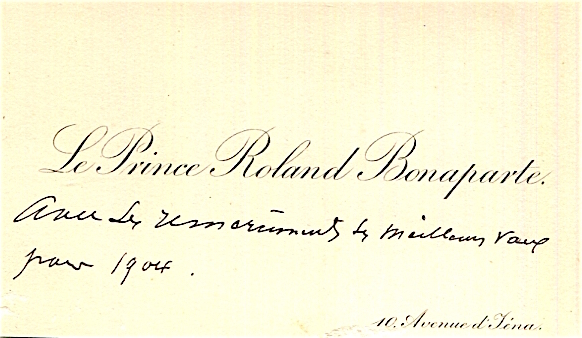 Le Prince Roland Bonaparte.
avec ses remerciements & meilleurs vœux
pour 1904.
10. Avenue d'Iéna.